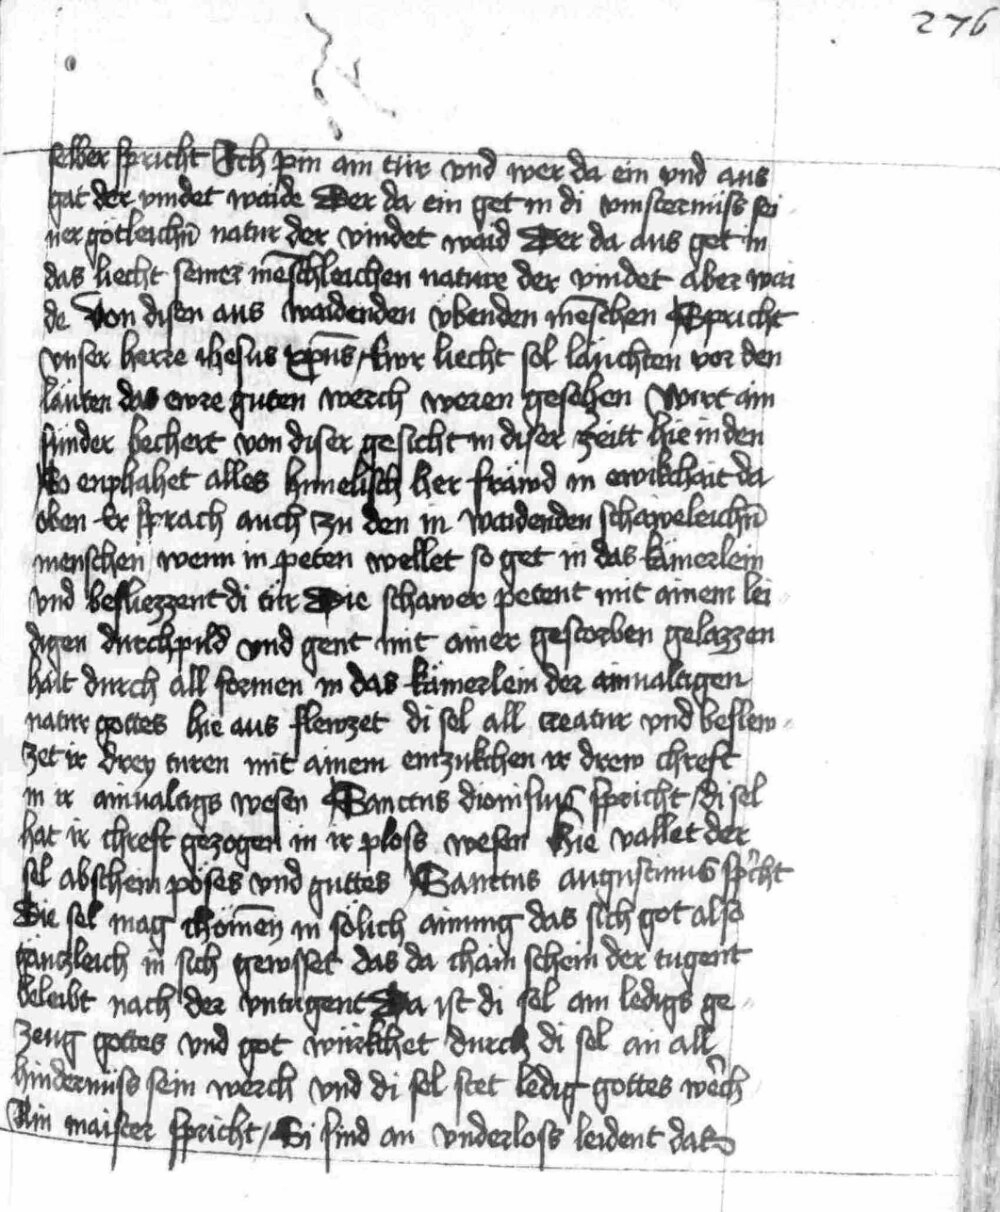 276
selber spricht Ich pin ain tür vnd wer da ein vnd aus
gat der vindet waide Wer da ein get in di vinsternüss sei
ner götleichn̄ natur der vindet waid Wer da aus get in
das liecht seiner mēschleichen nature der vindet aber wai
de Von disen aus waidenden vbenden mēschen Spricht
vnser herre ihesus xp̄us / Ewr liecht sol läuchten vor den
läuten das ewre guten werch weren gesehen Wirt ain
sünder bechert von diser gesicht in diser zeitt hie in den
So enphahet alles himelisch her fräwd in ewikchait da
oben Er sprach auch zu den in waidenden schaweleichn̄
menschen wenn ir peten wellet so get in das kämerlein
vnd besliezzent di tür Die schawer petent mit ainem lei
digen durchpild vnd gent mit ainer gestorben gelazzen
hait durch all formen in das kämerlein der ainualtigen
natur gottes hie aus flewzet di sel all creatur vnd beslew
zet ir drey türen mit ainem einzukchen ir drew chreft
in ir ainualtigs wesen Sanctus dionisius spricht / di sel
hat ir chreft gezogen in ir ploss wesen Hie vallet der
sel abschein pöses vnd guttes Sanctus augustinus sp̄cht
Die sel mag chömen in sölich ainung das sich got also
gänczleich in sich gewsset das da chain schein der tugent
beleibt nach der vntugent Da ist di sel ain ledigs ge
zeug gottes vnd got würkchet durch di sel an all
hindernüss sein werch vnd di sel stet ledig gottes w̄ch
Ain maister spricht / Si sind an vnderloss leident das